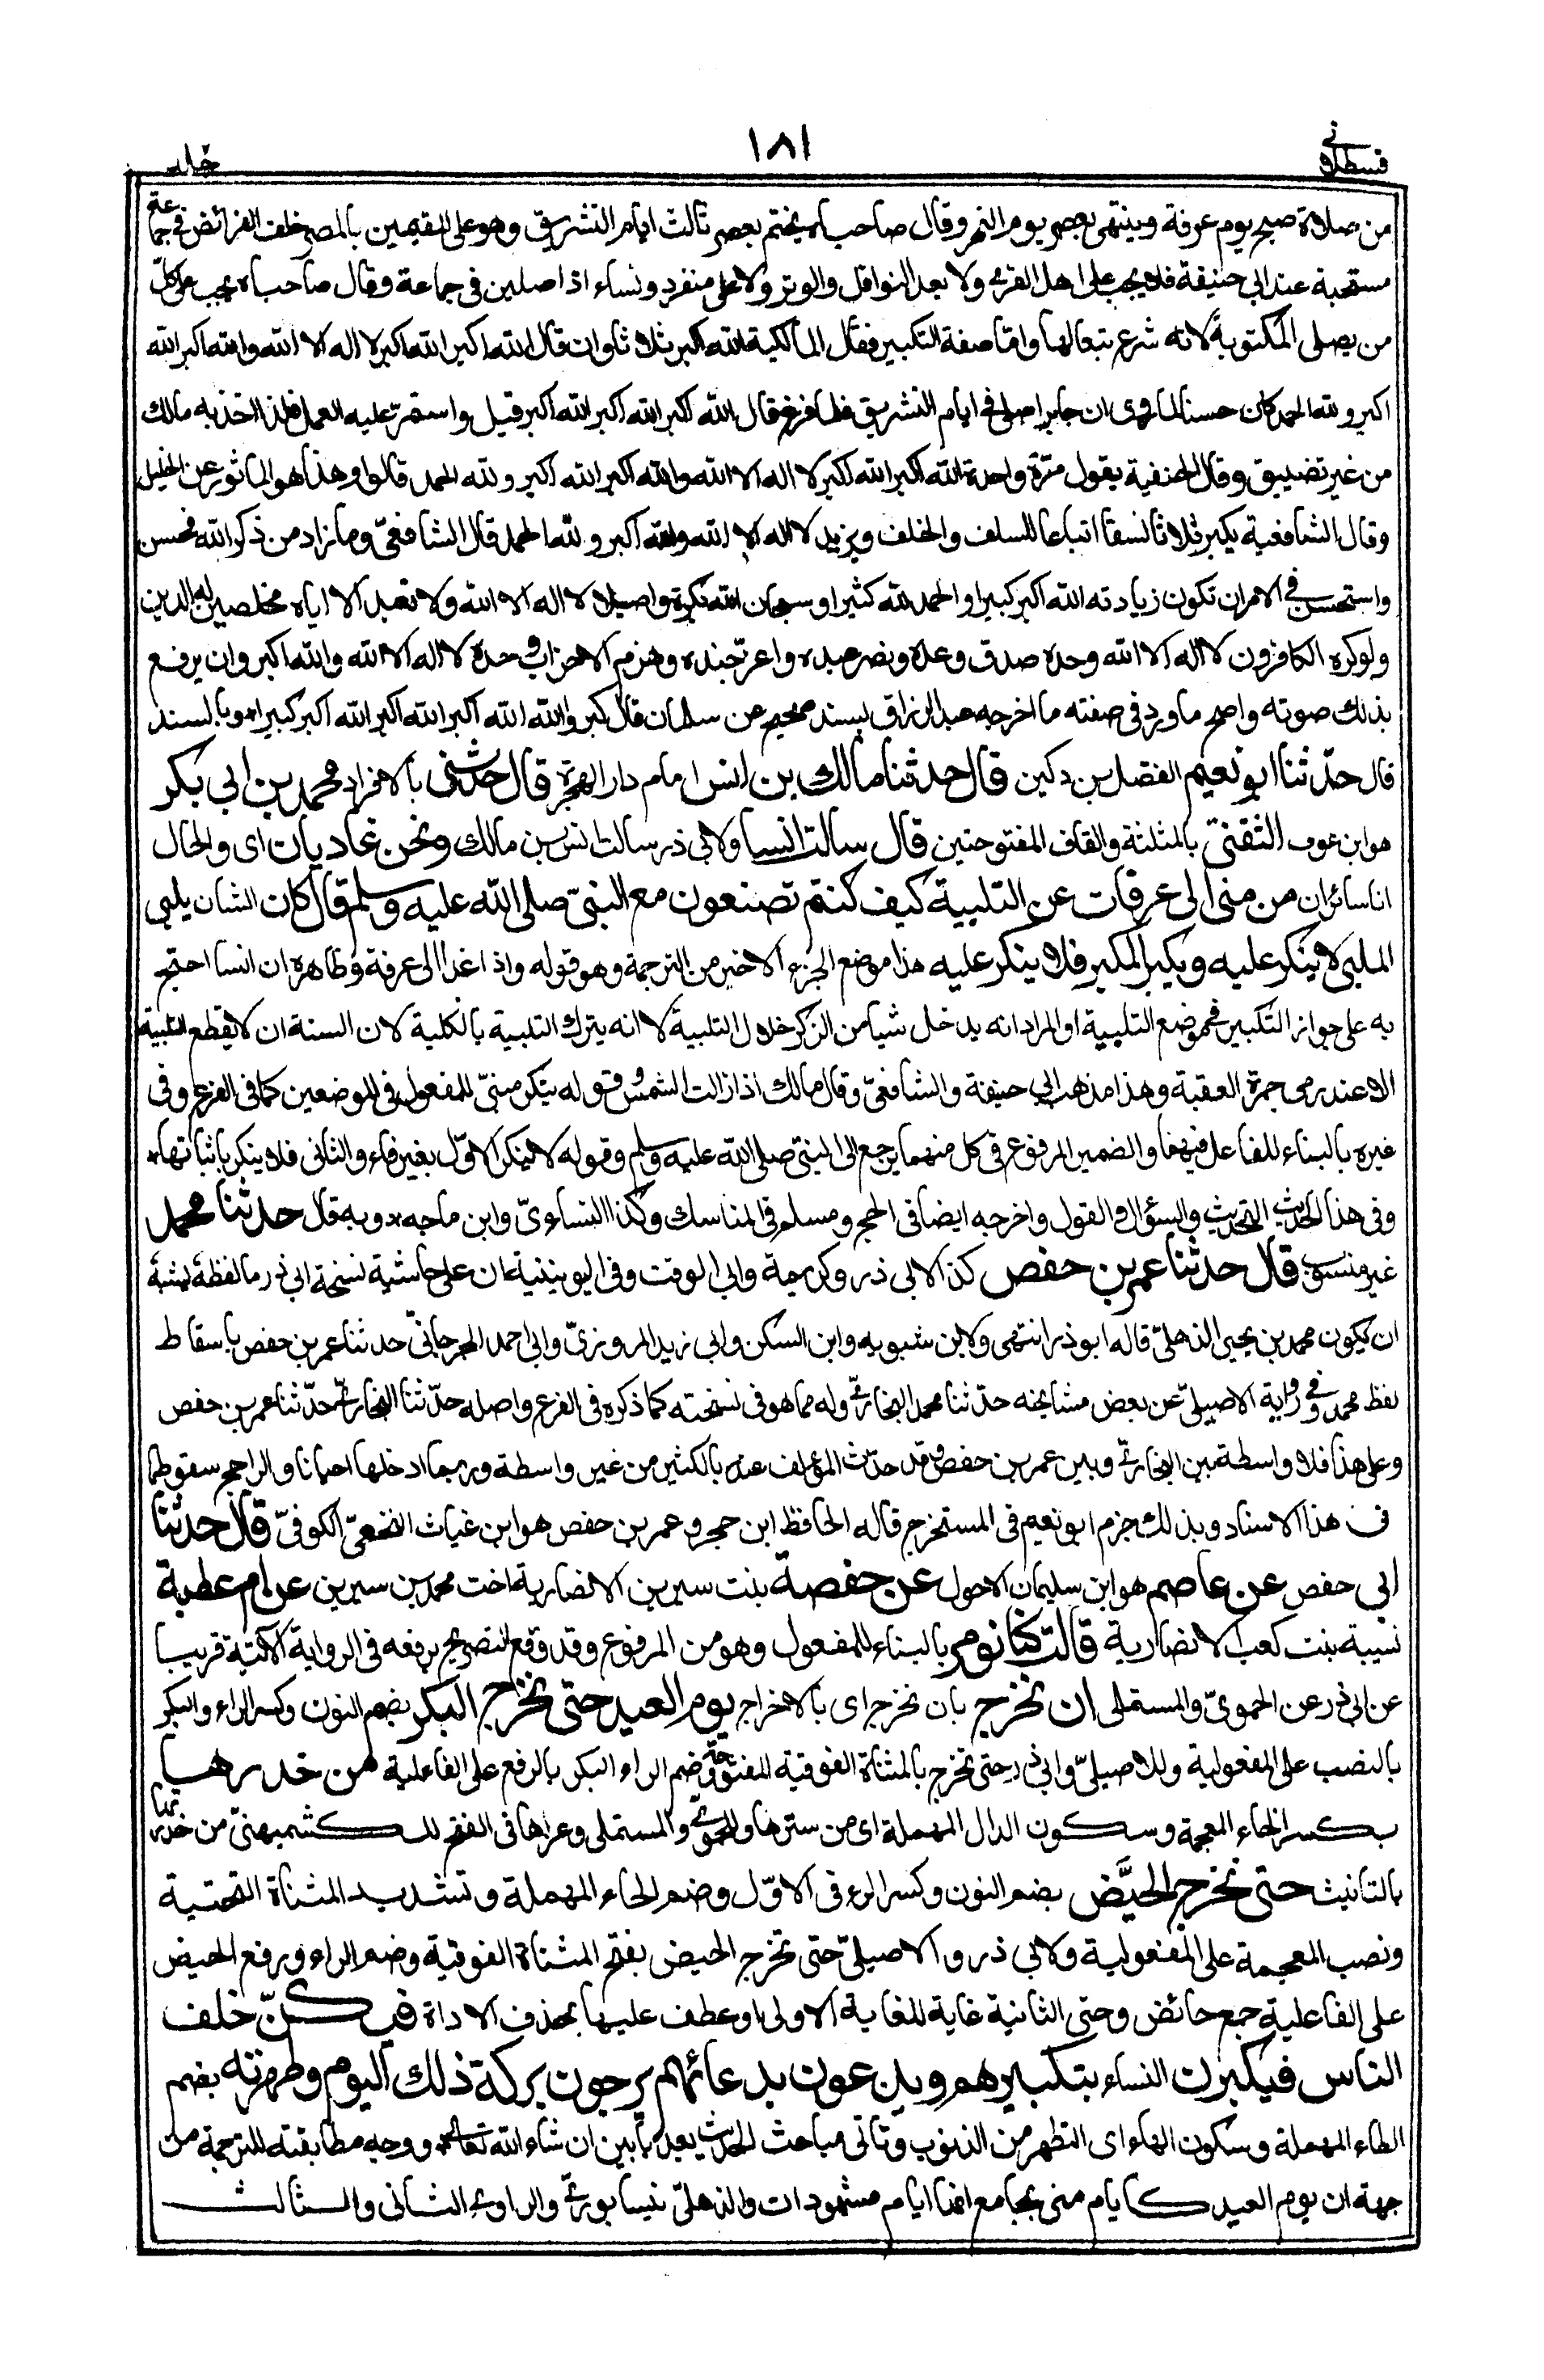 قسطلانى
١٨١
من صلاة صبح يوم عرفة وينتهى بعصر يوم النحر وقال صاحباه يختم بعصر ثالث ايام التشريق وهو على المقيمين بالمصر خلف الفرائض فى جماعة
مستحبة عند ابى حنيفة فلا يجب على اهل القرى ولا بعد النوافل والوتر ولا على منفرد ونساء اذا صلين فى جماعة وقال صاحباه يجب على كل
من يصلى المكتوبة لانه شرع تبعا لها واما صفة التكبير فقال المالكية الله اكبر ثلاثا وان قال الله اكبر الله اكبر لا اله الا الله والله اكبر الله
اكبر ولله الحمد كان حسنا لما روى ان جابرا صلى فى ايام التشريق فلما فرغ قال الله اكبر الله اكبر الله اكبر قيل واستمرّ عليه العمل فلذا اخذ به مالك
من غير تضييق وقال الحنفية يقول مرّة واحدة الله اكبر الله اكبر لا اله الا الله والله اكبر الله اكبر ولله الحمد قالوا وهذا هو المأثور عن الخليل
وقال الشافعية يكبر ثلاثا نسقا اتباعا للسلف والخلف ويزيد لا اله الا الله والله اكبر ولله الحمد قال الشافعىّ وما زاد من ذكر الله فحسن
واستحسن فى الامّ ان تكون زيادته الله اكبر كبيرا والحمد لله كثيرا وسبحان الله بكرة واصيلا لا اله الا الله ولا نعبد الا اياه مخلصين له الدين
ولو كره الكافرون لا اله الا الله وحده صدق وعده ونصر عبده واعز جنده وهزم الاحزاب وحده لا اله الا الله والله اكبر وان يرفع
بذلك صوته واصح ما ورد فى صفته ما اخرجه عبد الرزاق بسند صحيح عن سلمان قال كبروا الله الله اكبر الله اكبر الله اكبر كبيرا * وبالسند
قال حدّثنا ابو نعيم الفضل بن دكين قال حدثنا مالك بن انس امام دار الهجرة قال حدثنى بالافراد محمد بن ابى بكر
هو ابن عوف الثقفىّ بالمثلثة والقاف المفتوحتين قال سالت انسا ولابى ذر سالت انس بن مالك ونحن غاديان اى والحال
انا سائران من منى الى عرفات عن التلبية كيف كنتم تصنعون مع النبىّ صلى الله عليه وسلم قال كان الشان يلبى
الملبى لا ينكر عليه ويكبر المكبر فلا ينكر عليه هذا موضع الجزء الاخير من الترجمة وهو قوله واذا غدا الى عرفة وظاهره ان انسا احتج
به على جواز التكبير فى موضع التلبية او المراد انه يدخل شيا من الذكر خلال التلبية لا انه يترك التلبية بالكلية لان السنة ان لا يقطع التلبية
الا عند رمى جمرة العقبة وهذا مذهب ابى حنيفة والشافعىّ وقال مالك اذا زالت الشمس وقوله ينكر مبنىّ للمفعول فى الموضعين كما فى الفرع وفى
غيره بالبناء للفاعل فيهما والضمير المرفوع فى كل منهما يرجع الى النبىّ صلى الله عليه وسلم وقوله لا ينكر الاوّل بغير فاء والثانى فلا ينكر باثباتها *
وفى هذا الحديث التحديث والسؤال والقول واخرجه ايضا فى الحج ومسلم فى المناسك وكذا النساءىّ وابن ماجه * وبه قال حدثنا محمد
غير منسوب قال حدثنا عمر بن حفص كذا لابى ذر وكريمة وابى الوقت وفى اليونينية ان على حاشية نسخة ابى ذر ما لفظه يشبه
ان يكون محمد بن يحيى الذهلىّ قاله ابو ذر انتهى ولابن شبويه وابن السكن وابى زيد المروزىّ وابى احمد الجرجانىّ حدثنا عمر بن حفص باسقاط
لفظ محمد وفى رواية الاصيلىّ عن بعض مشايخه حدّثنا محمد البخارىّ وله مما هو فى نسخته كما ذكره فى الفرع واصله حدّثنا البخارىّ حدّثنا عمر بن حفص
وعلى هذا فلا واسطة بين البخارىّ وبين عمر بن حفص وقد حدّث المؤلف عنه بالكثير من غير واسطة وربما ادخلها احيانا والراجح سقوطها
فى هذا الاسناد وبذلك جزم ابو نعيم فى المستخرج قاله الحافظ ابن حجر وعمر بن حفص هو ابن غياث النخعىّ الكوفىّ قال حدثنا
ابى حفص عن عاصم هو ابن سليمان الاحول عن حفصة بنت سيرين الانصارية اخت محمد بن سيرين عن ام عطية
نسيبة بنت كعب الانصارية قالت كنا نومر بالبناء للمفعول وهو من المرفوع وقد وقع التصريح برفعه فى الرواية الآتية قريبا
عن ابى ذر عن الحموىّ والمستملى ان نخرج بان نخرج اى بالاخراج يوم العيد حتى نخرج البكر بضم النون وكسر الراء والبكر
بالنصب على المفعولية وللاصيلىّ وابى ذر حتى تخرج بالمثناة الفوقية المفتوحة وضم الراء البكر بالرفع على الفاعلية من خدرها
بكسر الخاء المعجمة وسكون الدال المهملة اى من سترها وللحموىّ والمستملى وعزاها فى الفتح للكشميهنىّ من خدرتها
بالتانيث حتى نخرج الحيَّض بضم النون وكسر الراء فى الاوّل وضم الحاء المهملة وتشديد المثناة التحتية
ونصب المعجمة على المفعولية ولابى ذر والاصيلىّ حتى تخرج الحيض بفتح المثناة الفوقية وضم الراء ورفع الحيض
على الفاعلية جمع حائض وحتى الثانية غاية للغاية الاولى او عطف عليها بحذف الاداة فيكنّ خلف
الناس فيكبرن النساء بتكبيرهم ويدعون بدعائهم يرجون بركة ذلك اليوم وطهرته بضم
الطاء المهملة وسكون الهاء اى التطهر من الذنوب وتاتى مباحث الحديث بعد بابين ان شاء الله تعالى * ووجه مطابقته للترجمة من
جهة ان يوم العيد كايام منى بجامع انها ايام مشهودات والذهلىّ نيسابورىّ والراوى الثانى والثالث